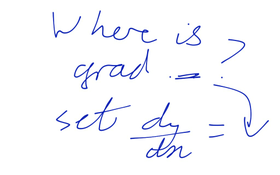 Where is
grad = ?
set dy/dx =